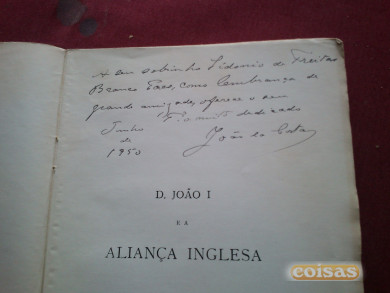 A seu sobrinho Sidonio de Freitas
Branco Paes, como lembrança de
grande amizade, oferece o seu
Tio muito dedicado
Junho
de
1950
João de
D. JOÃO I
E A
ALIANÇA INGLESA
coisas